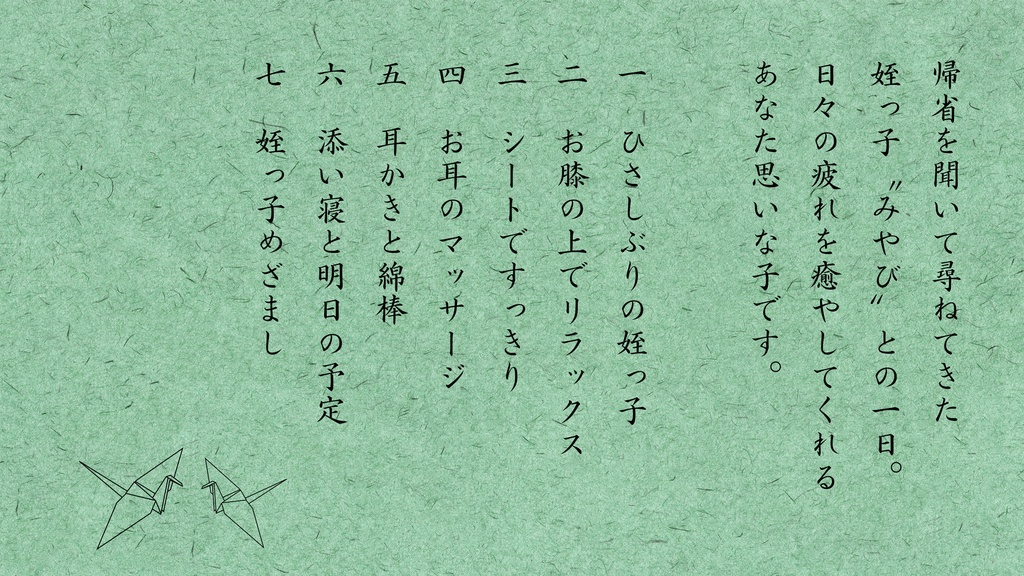 帰省を聞いて尋ねてきた
姪っ子〝みやび〟との一日。
日々の疲れを癒やしてくれる
あなた思いな子です。
一 ひさしぶりの姪っ子
二 お膝の上でリラックス
三 シートですっきり
四 お耳のマッサージ
五 耳かきと綿棒
六 添い寝と明日の予定
七 姪っ子めざまし